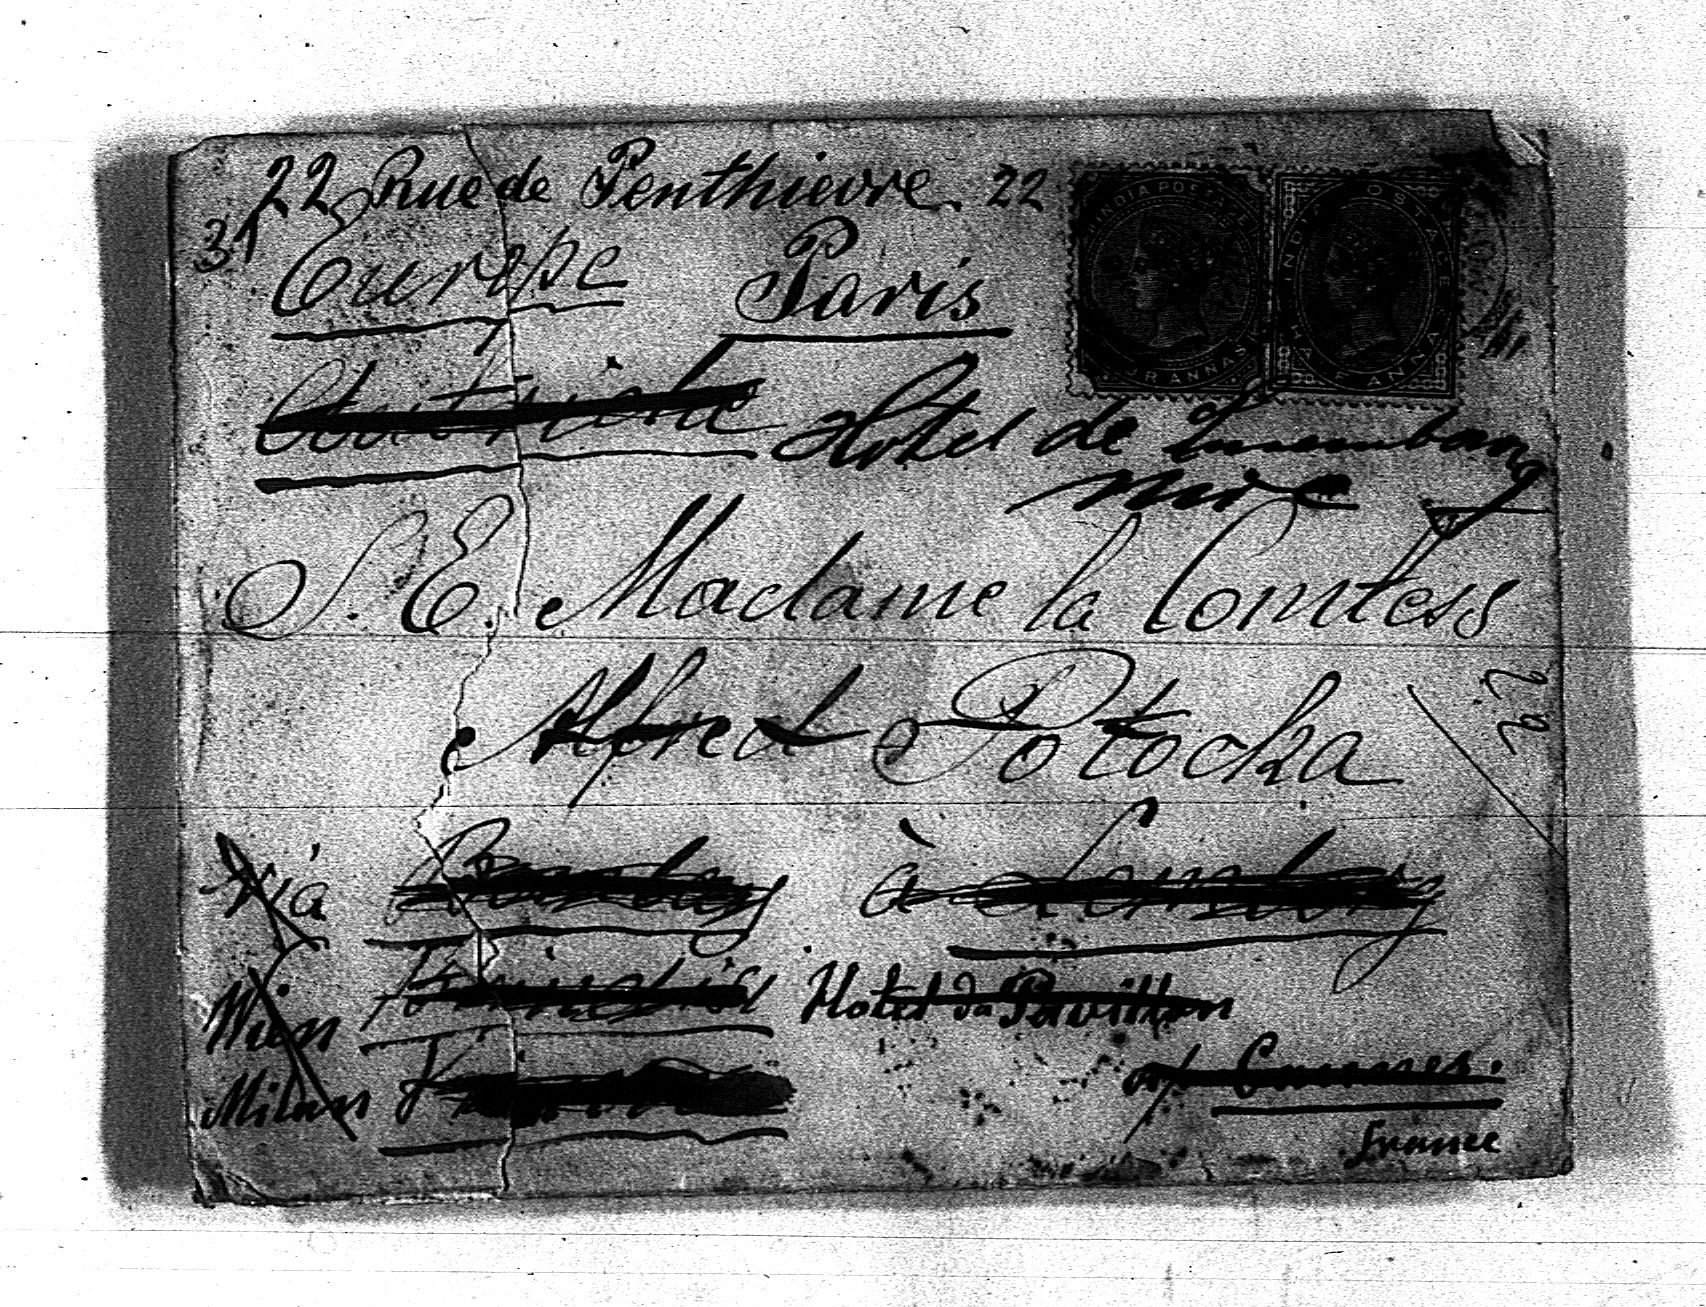 22 Rue de Penthievre 22
31
Europe Paris
INDIA POSTAGE
ANNAS
INDIA POSTAGE
Autriche Hotel de Luxembourg
Nice
S. E. Madame la Comtesse
Alfred Potocka
22
Via Bombay à Lemberg
Wien Brindisi Hotel du Pavillon
Milan
Cannes.
France